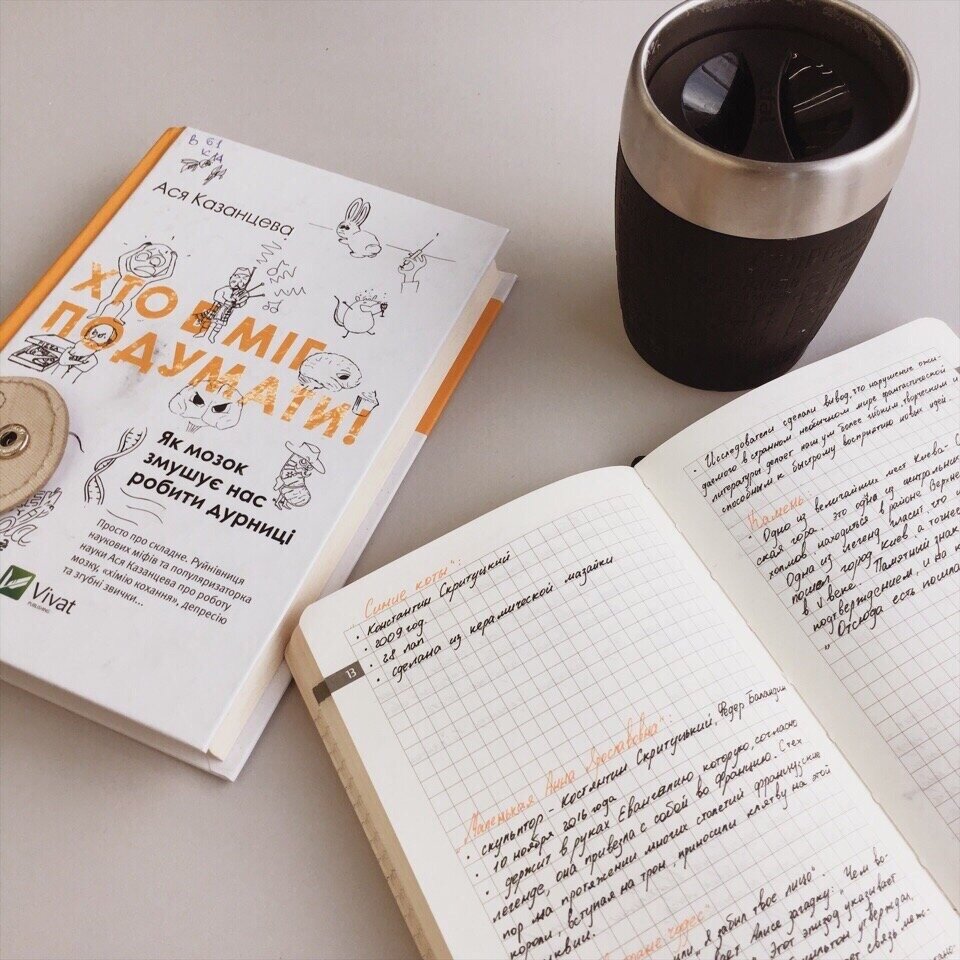 В 61
КАА
Ася Казанцева
ХТО Б МІГ
ПОДУМАТИ!
Як мозок
змушує нас
робити дурниці
Просто про складне. Руйнівниця
наукових міфів та популяризаторка
науки Ася Казанцева про роботу
мозку, «хімію кохання», депресію
та згубні звички...
Vivat
PUBLISHING
"Синие коты":
• Константин Скритуцкий
• 2009 год
• 28 лап
• сделана из керамической мазайки
13
"Маленькая Анна Ярославовна":
• скульптор - Костянтин Скритуцький, Федер Баландин
• 10 ноября 2016 года
• держит в руках Евангелию которую, согласно
легенде, она привезла с собой во Францию. С тех
пор на протяжении многих столетий французские
короли, вступая на трон, приносили клятву на этой
чудес"
или "Я забыл твое лицо".
Алисе загадку: "Чем во-
Этот эпизод указывает
утверждал,
связь меж-
• Исследователи сделали вывод, что нарушение ожи-
даемого в странном необычном мире фантастической
литературы делает наш ум более гибким, творческим и
способным к быстрому восприятию новых идей.
Камень
• Одно из величайших мест Киева-
ская гора. это одна из центральных
холмов, находится в районе Верхне
Одна из легенд гласит, что и
пошел город Киев, а точнее
в V веке. Памятный знак
подтверждением, и на к
"Отсюда есть пошла